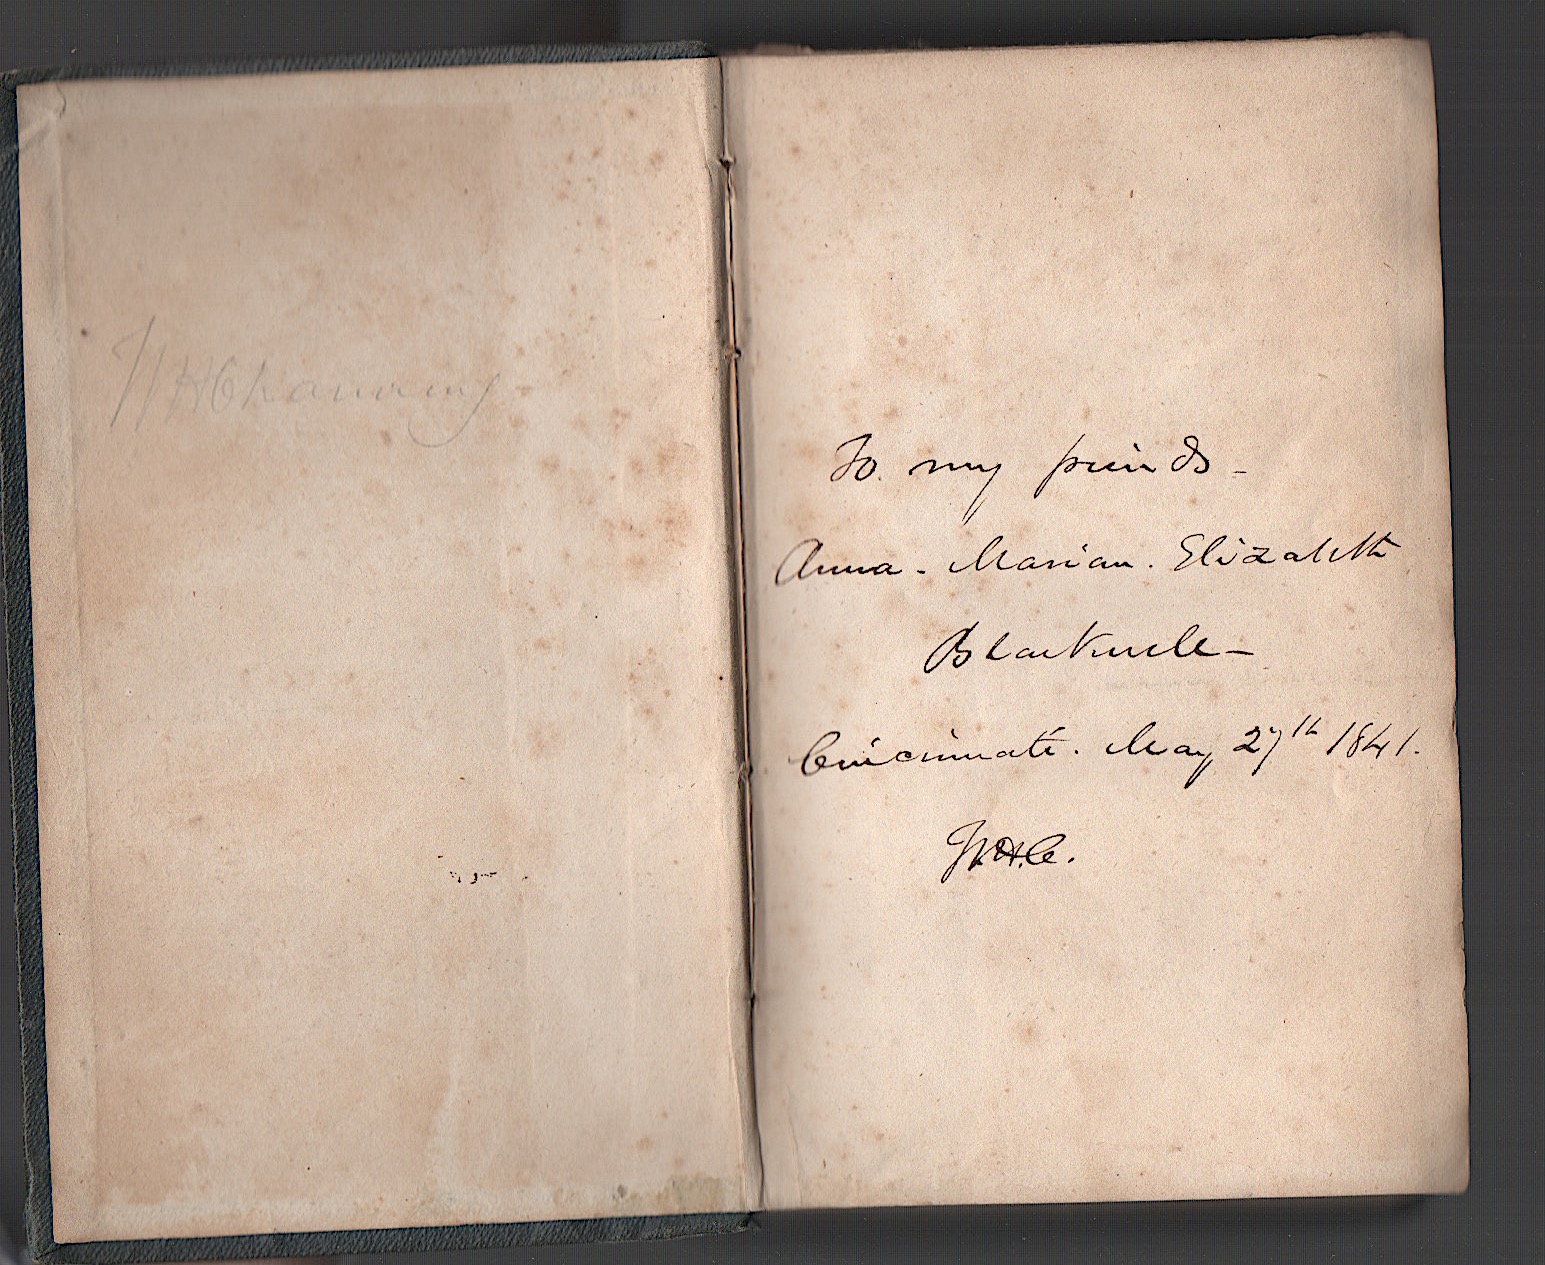 WHChanning
To my friends -
Anna - Marian. Elizabeth
Blackwell -
Cincinnati. May 27th 1841.
W.H.C.